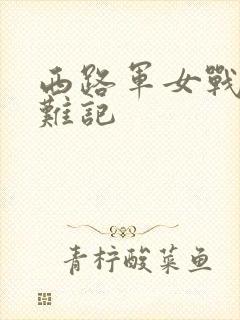 西路軍女戰
難記
青柠酸菜鱼